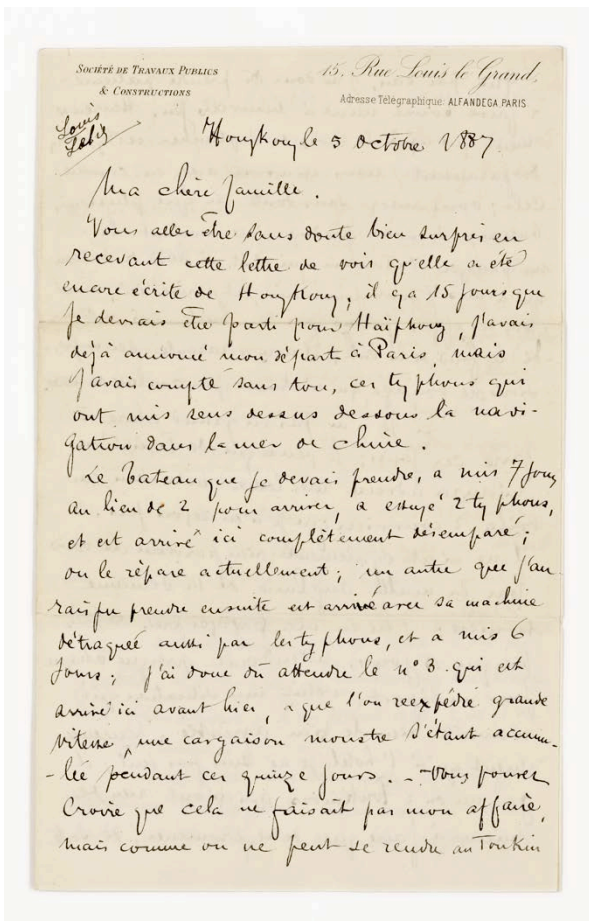 SOCIÉTÉ DE TRAVAUX PUBLICS
& CONSTRUCTIONS
15, Rue Louis le Grand,
Adresse Télégraphique: ALFANDEGA PARIS
Louis
Hongkong le 5 octobre 1887
Ma chère famille.
Vous aller être sans doute bien surpris en
recevant cette lettre de voir qu'elle a été
encore écrite de Hongkong, il y a 15 jours que
je devrais être parti pour Haïphong, j'avais
déjà annoncé mon départ à Paris, mais
j'avais compté sans tous ces typhons qui
ont mis sens dessus dessous la navi-
gation dans la mer de chine.
Le bateau que je devais prendre, a mis 7 jours
au lieu de 2 pour arriver, a essuyé 2 typhons,
et est arrivé ici complètement désemparé;
on le répare actuellement; un autre que j'au
rais pu prendre ensuite est arrivé avec sa machine
détraquée aussi par les typhons, et a mis 6
jours; j'ai donc dû attendre le n° 3 qui est
arrivé ici avant hier, que l'on reexpédie grande
vitesse, une cargaison monstre s'étant accumu-
-lée pendant ces quinze jours. - Vous pouvez
Croire que cela ne faisait pas mon affaire,
mais comme on ne peut se rendre au Tonkin